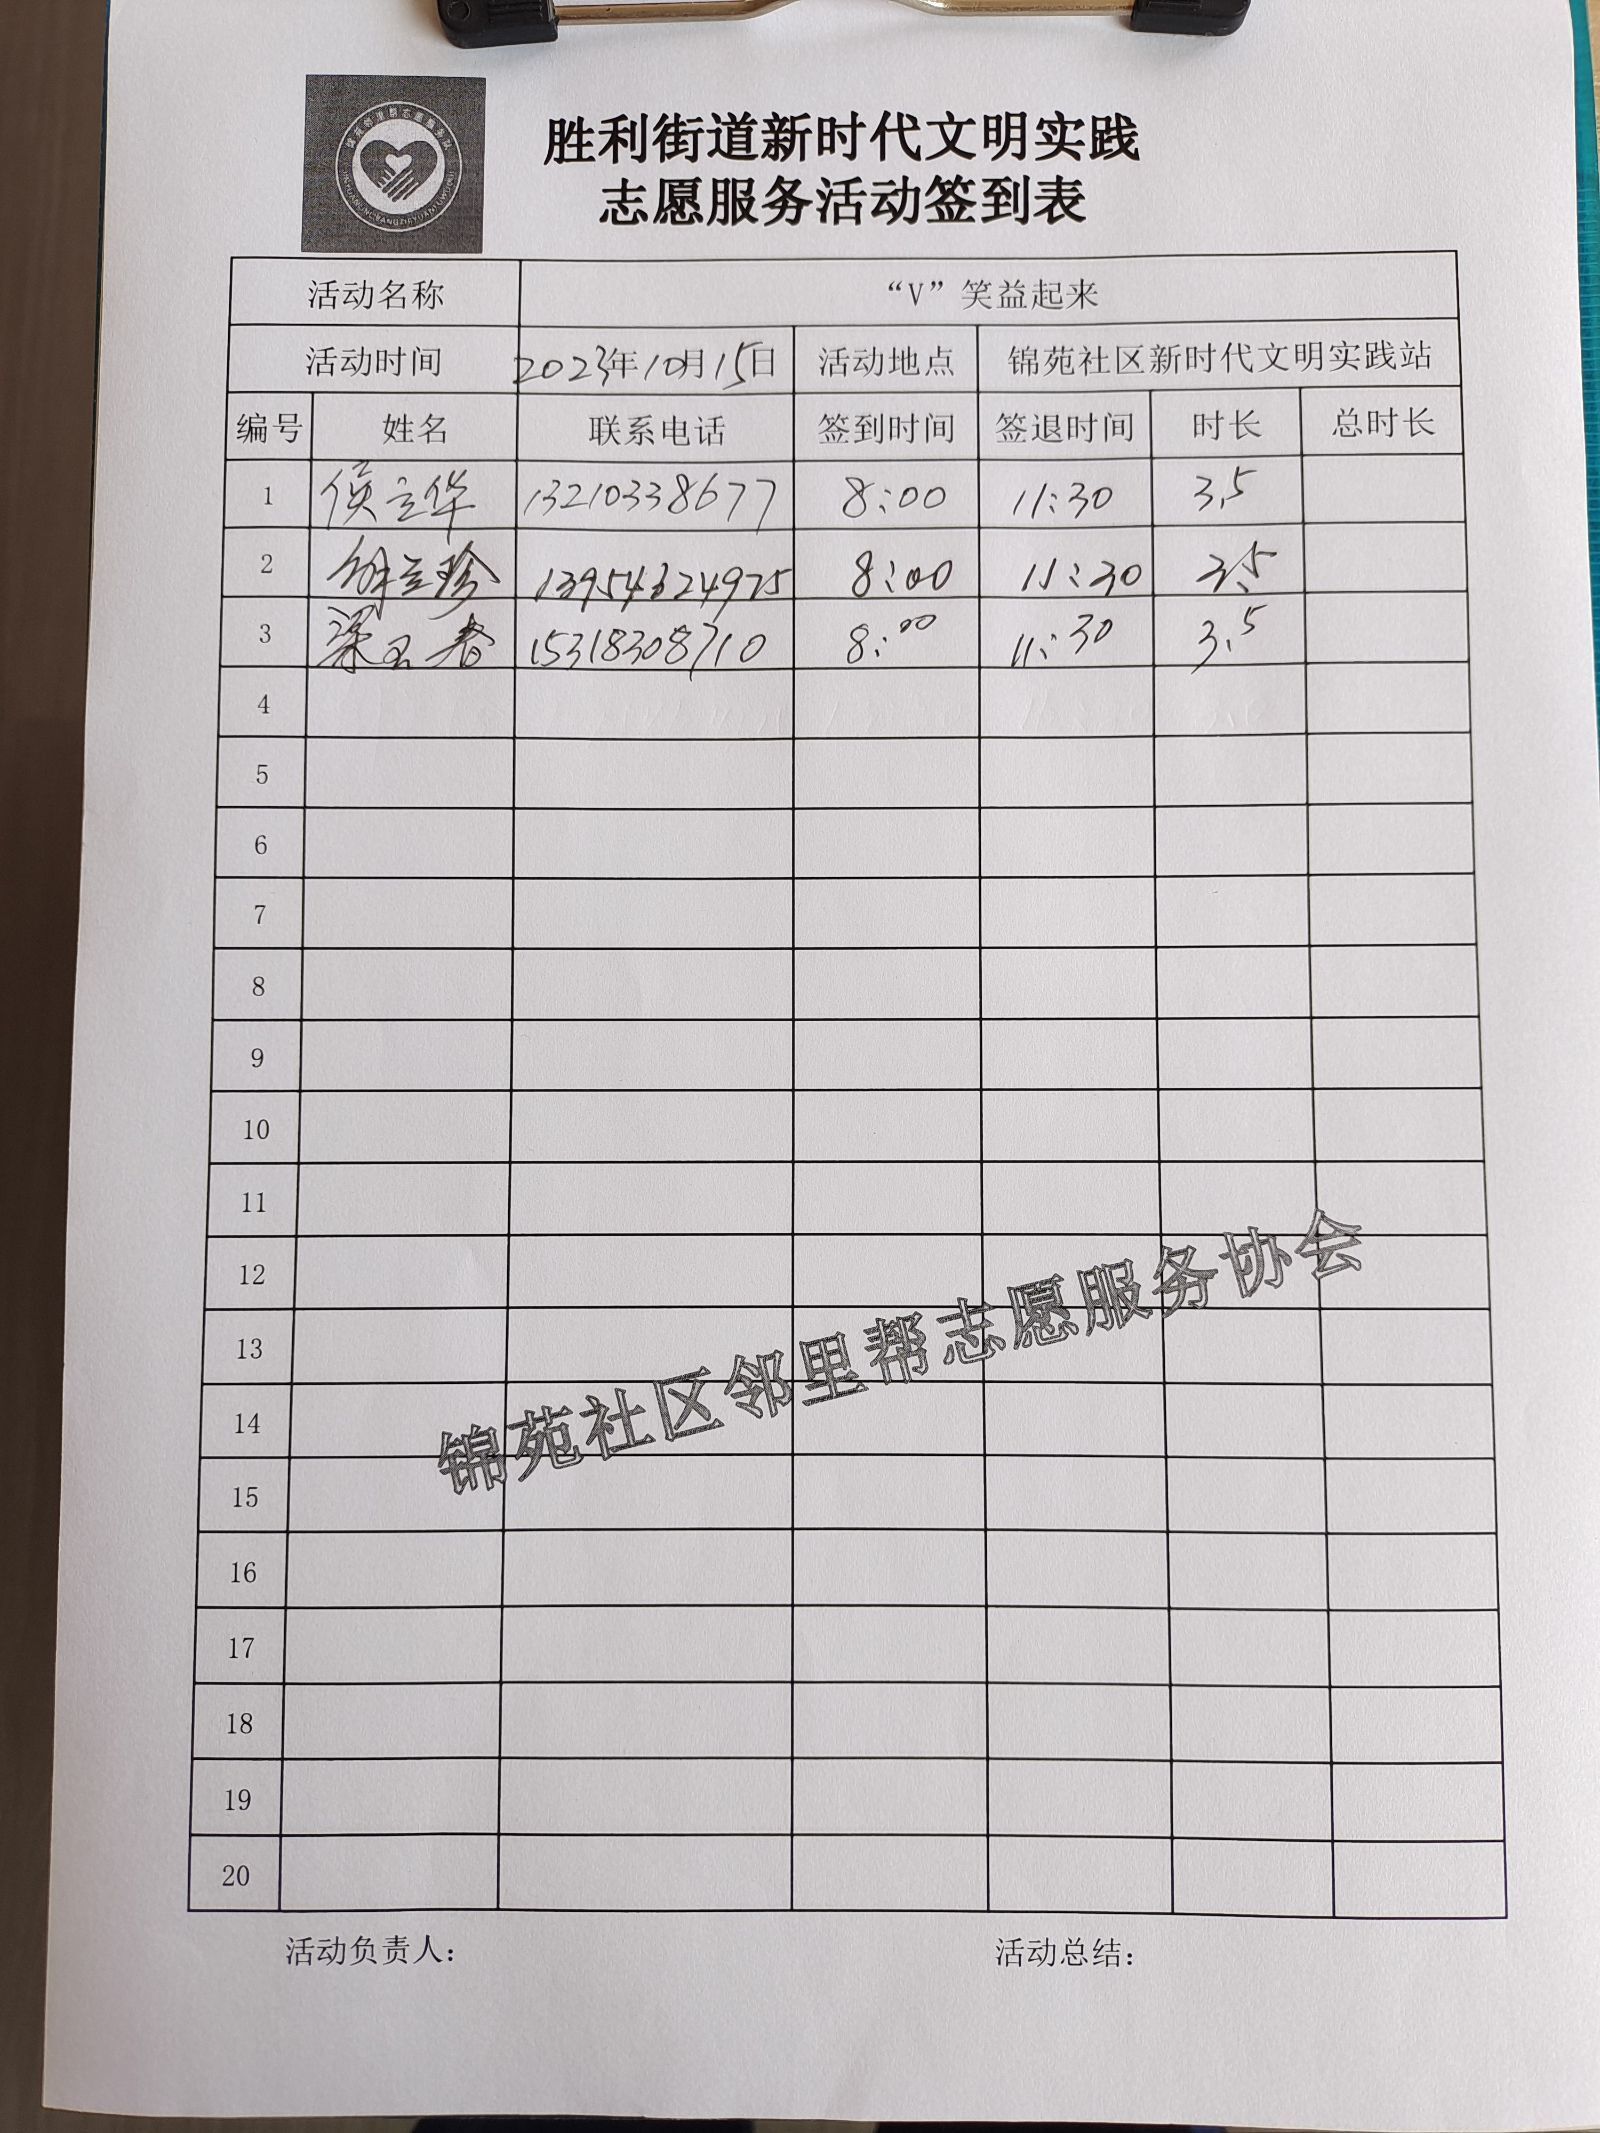 胜利街道新时代文明实践
志愿服务活动签到表
活动名称 “V”笑益起来
活动时间 2023年10月15日 活动地点 锦苑社区新时代文明实践站
编号 姓名 联系电话 签到时间 签退时间 时长 总时长
1 侯立华 13210338677 8:00 11:30 3.5
2 13954624975 8:00 11:30 3.5
3 梁玉春 15318308710 8:00 11:30 3.5
4
5
6
7
8
9
10
11
12
13
14
15
16
17
18
19
20
锦苑社区邻里帮志愿服务协会
活动负责人： 活动总结：